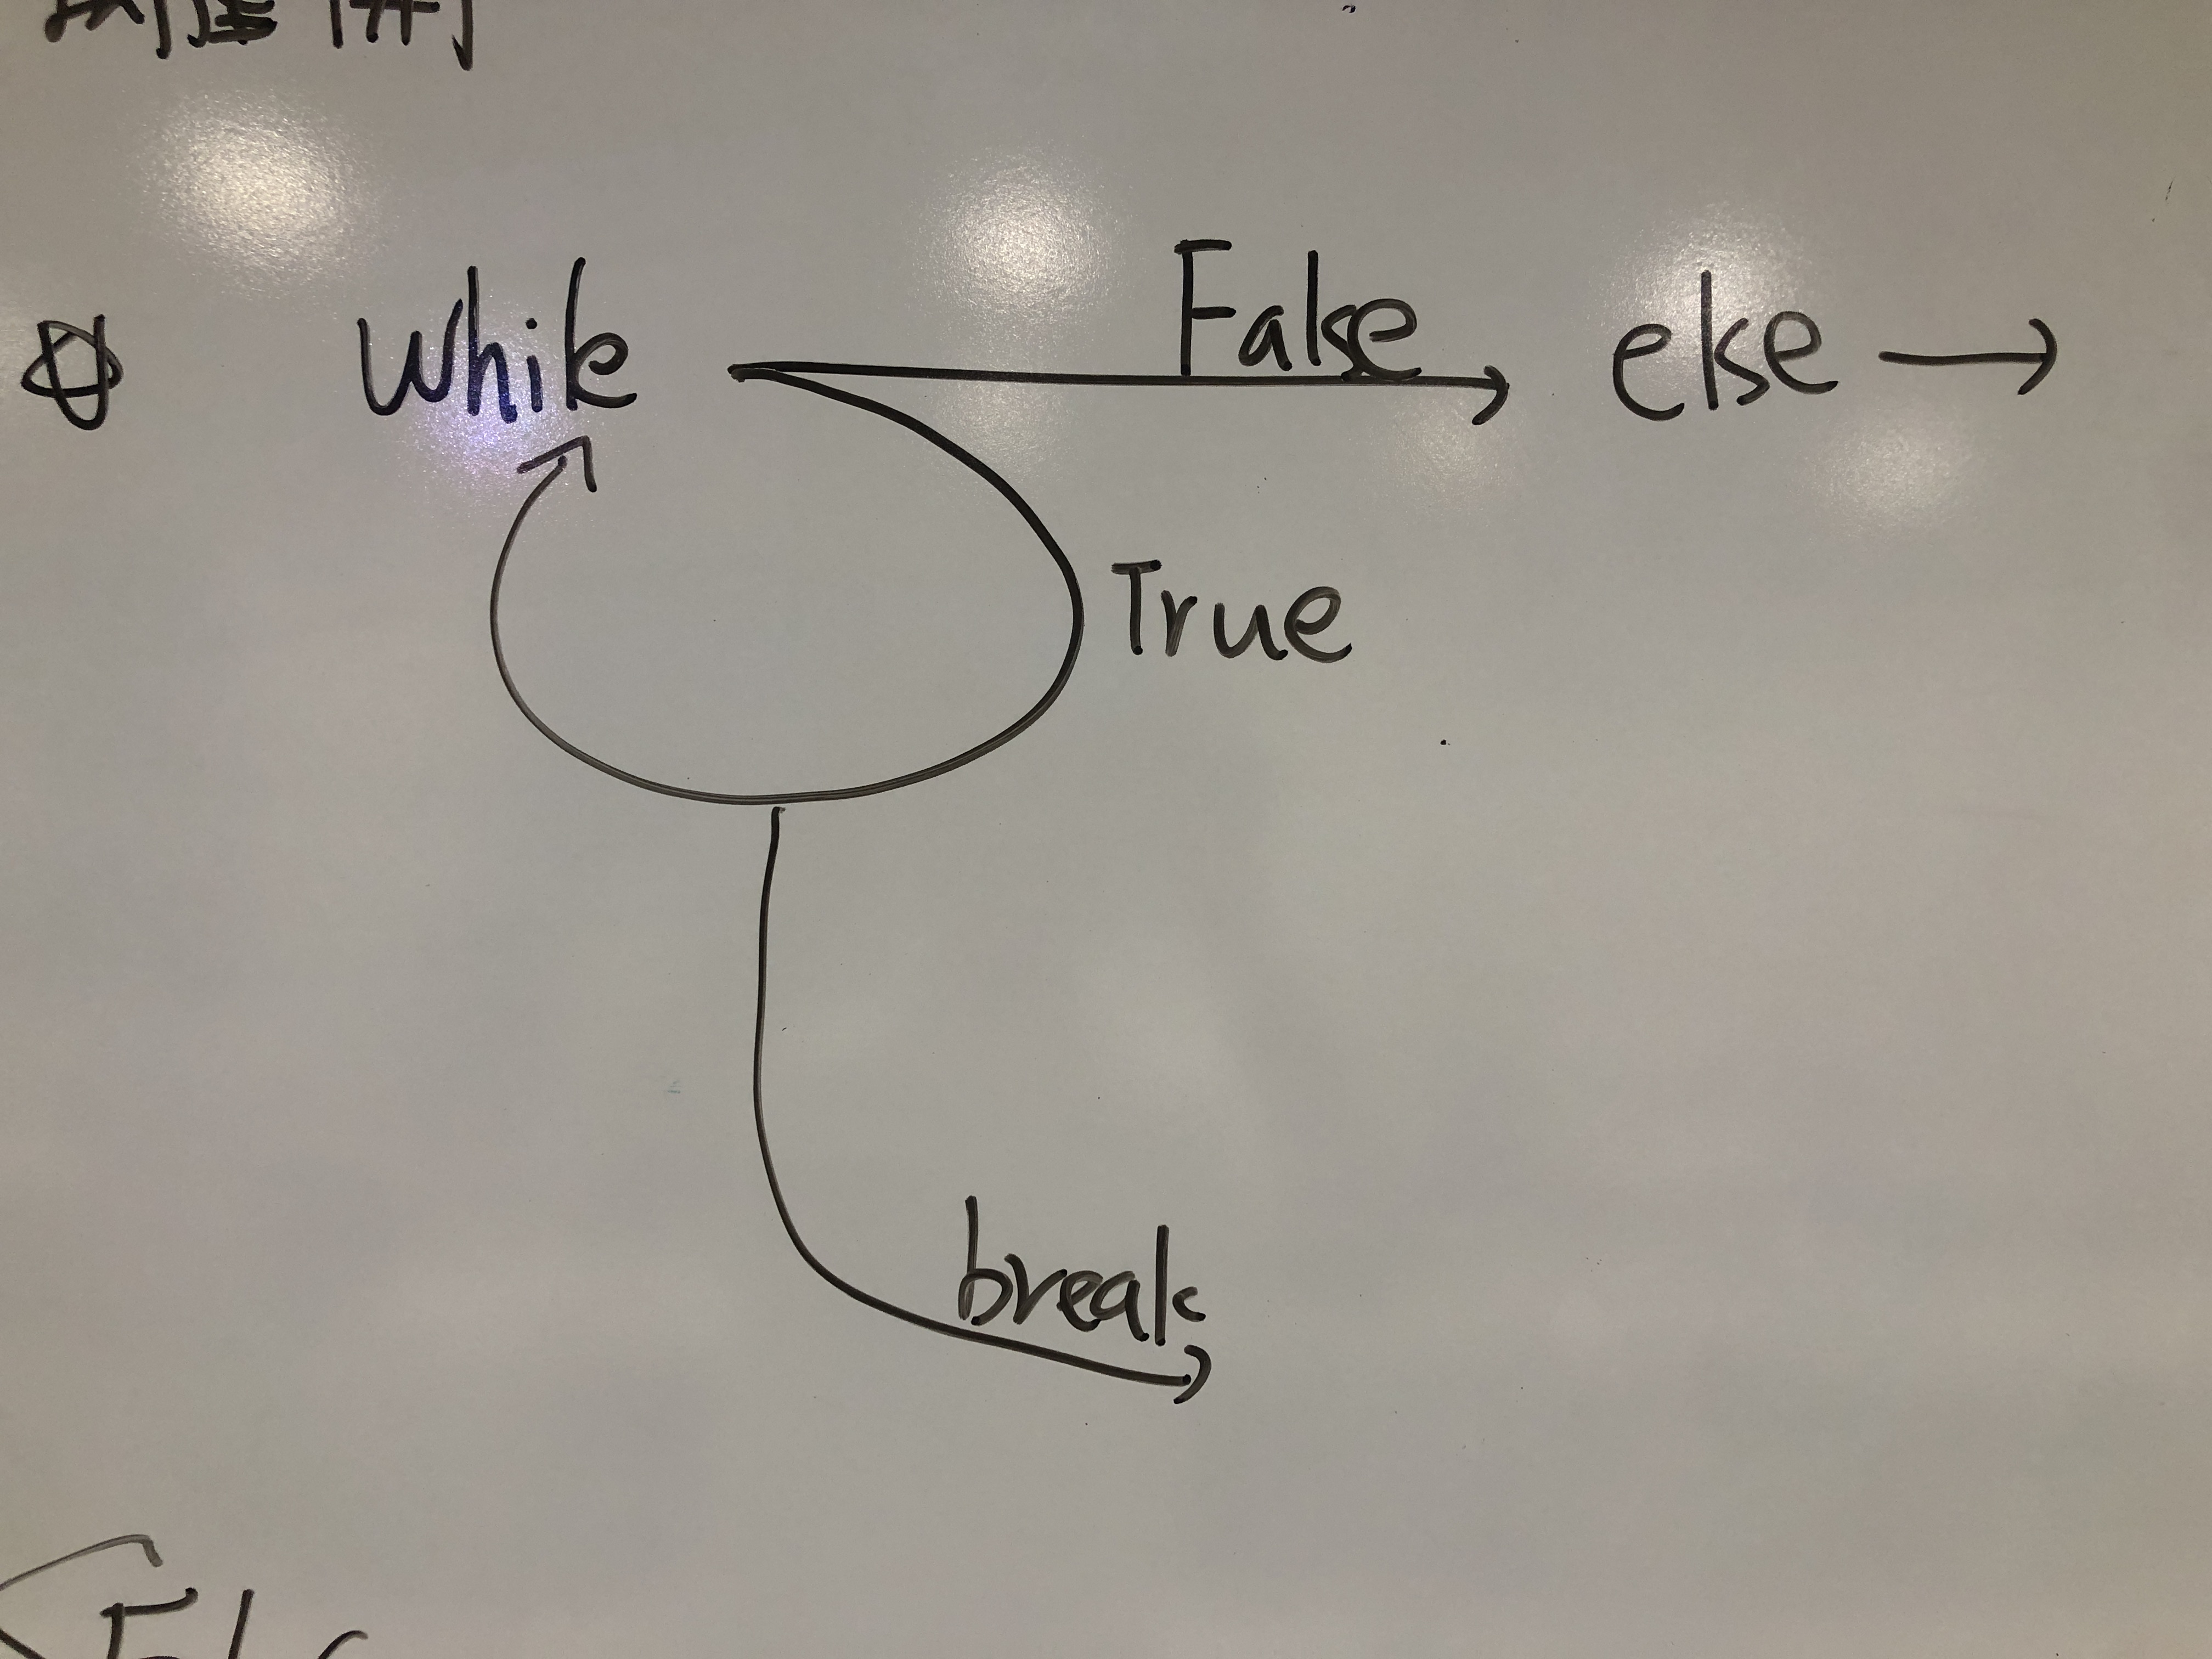 While
False
else
True
break